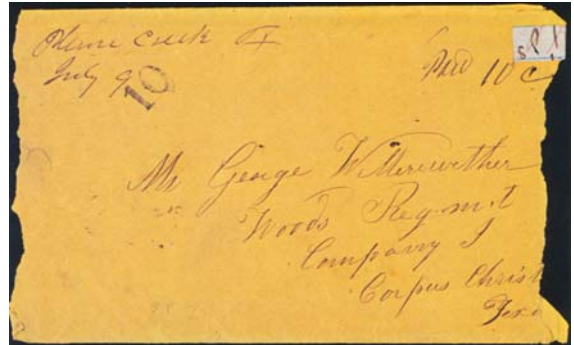 Plum Creek Tx
July 9
10
Paid 10 c
Mr George W Meriwether
Woods Regmt
Company I
Corpus Christ
Texa